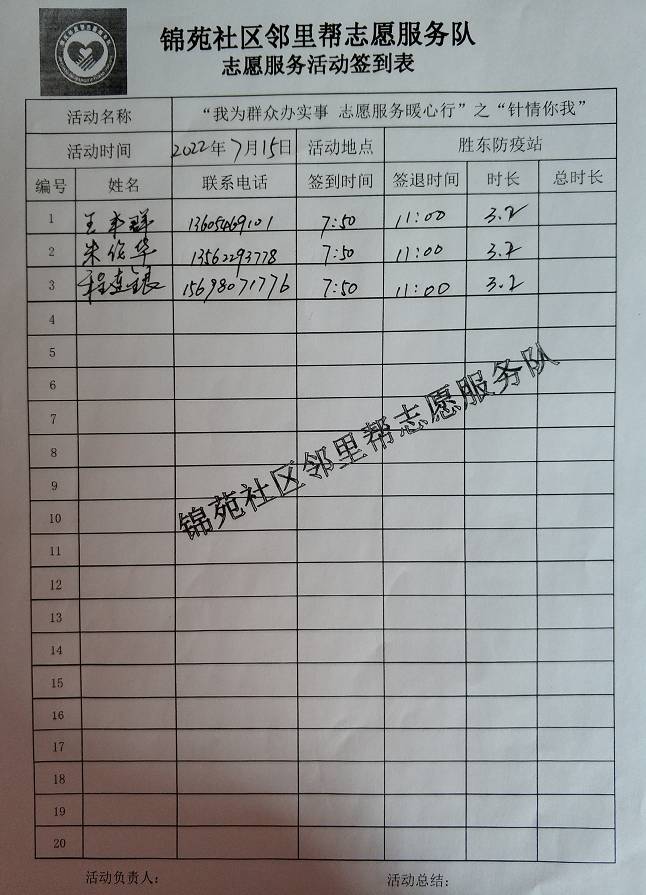 锦苑社区邻里帮志愿服务队
志愿服务活动签到表
活动名称 “我为群众办实事 志愿服务暖心行”之“针情你我”
活动时间 2022年7月15日 活动地点 胜东防疫站
编号 姓名 联系电话 签到时间 签退时间 时长 总时长
1 王 群 13605469101 7:50 11:00 3.2
2 朱 华 13562293778 7:50 11:00 3.2
3 程连银 15698071776 7:50 11:00 3.2
4
5
6
7
8
9
10
11
12
13
14
15
16
17
18
19
20
锦苑社区邻里帮志愿服务队
活动负责人: 活动总结: